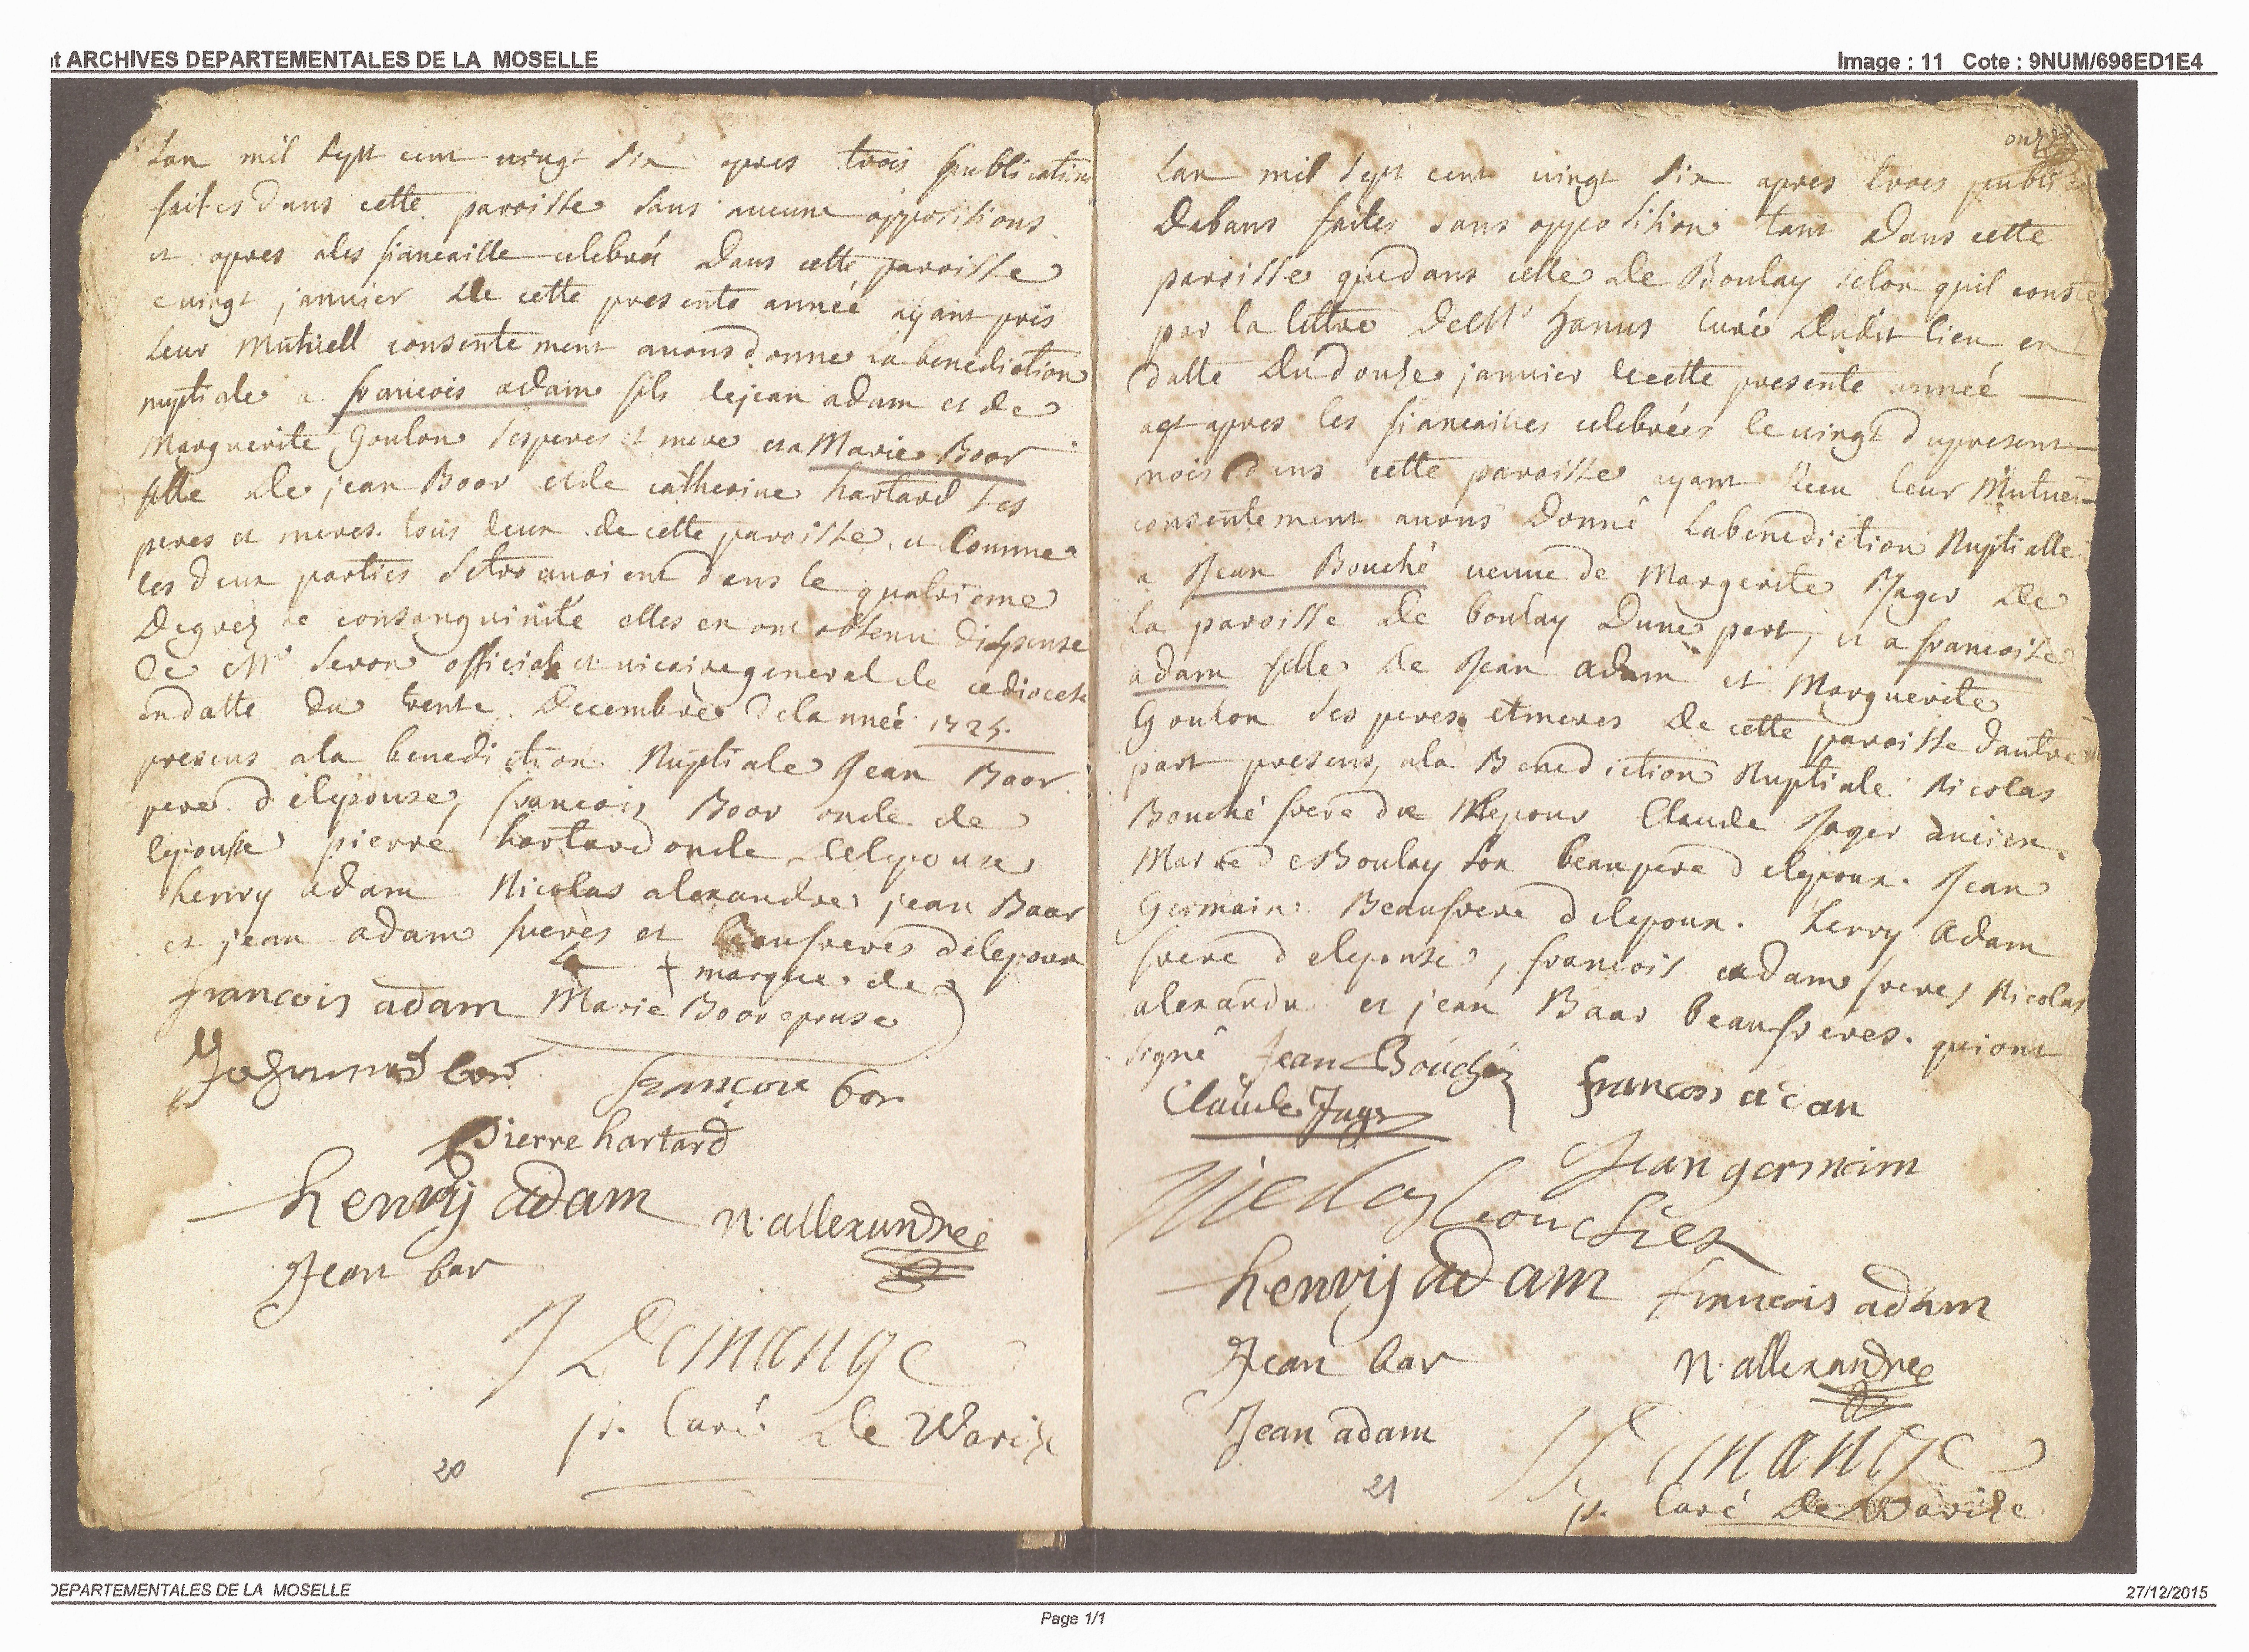 nt ARCHIVES DEPARTEMENTALES DE LA MOSELLE
Image : 11 Cote : 9NUM/698ED1E4
Lan mil sept cent vingt six apres trois publications
faites dans cette paroisse sans aucune oppositions
et apres ales fiancaille celebrés dans cette paroisse
e vingt janvier de cette presente année ayant pris
Leur Mutuell consentement avons donne la benediction
nuptiale a francois adam fils de jean adam et de
Marguerite Goulon ses peres et mere et a Marie Boor
fille de jean Boor et de catherine hartard ses
peres et meres. tous deux de cette paroisse. et Comme
les deux parties se trouvoient dans le quatrieme
Degrez de consanguinité elles en ont obtenu dispense
de Mr seron official et vicaire general de ce diocese
en datte du trente Decembre de lannée 1725.
presens a la benediction Nuptiale Jean Boor
pere de lepouse, francois Boor oncle de
lepouse pierre hartard oncle de lepouse
henry adam Nicolas alexandre jean Baar
et jean adam freres et beaufreres de lepoux
+ marque de
francois adam Marie Boor epouse
bor
françoi bor
Pierre hartard
henry adam n. allexandre
Jean bar
J Demange
p. Curé de Varize
20
onze
Lan mil sept cent vingt six apres trois publi
de bans faites sans opposition tant dans cette
paroisse que dans celle de Boulay selon quil conste
par la lettre de Mr hanus curé dudit lieu en
datte du douze janvier de cette presente année
apres les fiancailles celebrées le vingt du present
mois dans cette paroisse ayant Receu leur Mutuel
consentement avons Donné La benediction Nuptialle
a Jean Bouché veuve de Margerite Jager de
la paroisse de boulay Dune part, et a francoise
adam fille de Jean adam et Marguerite
Goulon ses peres et meres de cette paroisse dautre
part presens, a la Benediction Nuptiale Nicolas
Bouché frere de lepoux Claude Jager ancien
Maire de Boulay son beaupere de lepoux. Jean
Germain Beaufrere de lepoux. henry Adam
frere de lepouse, francois adam freres Nicolas
alexandre et jean Baar beaufreres. qui ont
signé Jean Bouché
Claude Jager francois adan
Jean germain
Nicolas bouchez
henry adam francois adam
Jean bar n. allexandre
Jean adam
J Demange
p. Curé de Varize
21
DEPARTEMENTALES DE LA MOSELLE
27/12/2015
Page 1/1